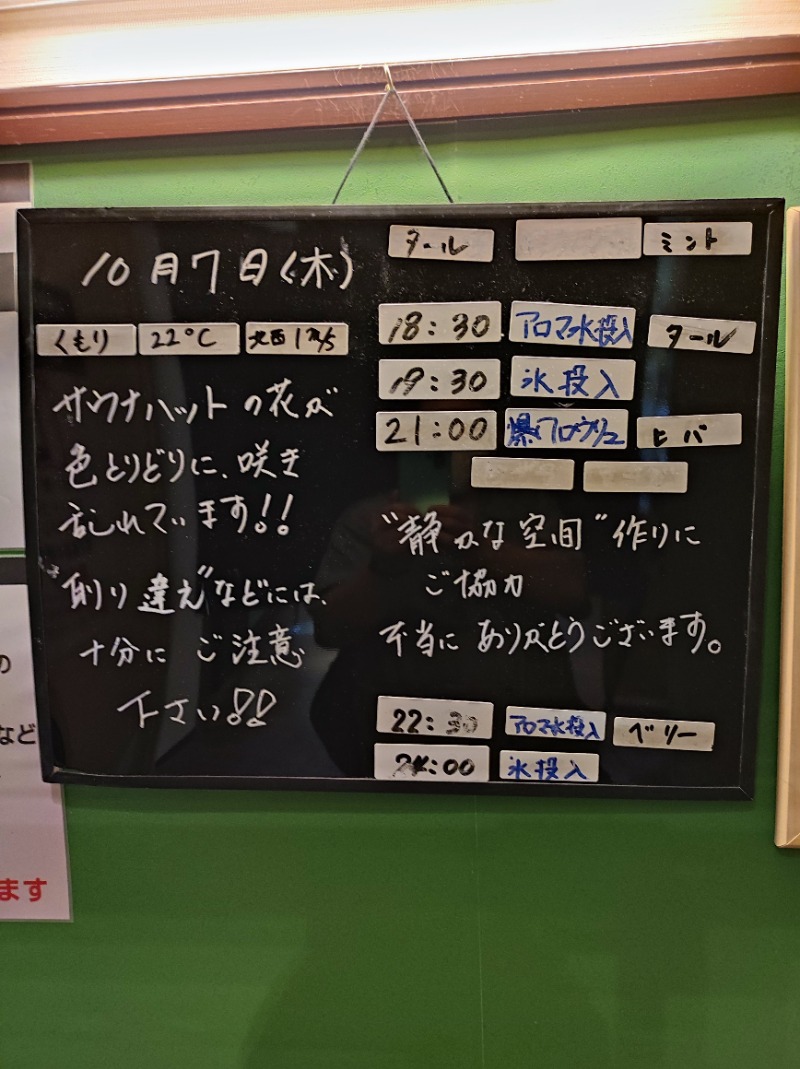 10月7日(木)
くもり 22℃ 北西1m/s
サウナハットの花が
色とりどりに、咲き
乱れています!!
"取り違え"などには、
十分に ご注意
下さい!!
タール ミント
18:30 アロマ水投入 タール
19:30 氷投入
21:00 爆アロウリュ ヒバ
"静かな空間"作りに
ご協力
本当に ありがとうございます。
22:30 アロマ水投入 ベリー
:00 氷投入
の
など
ます